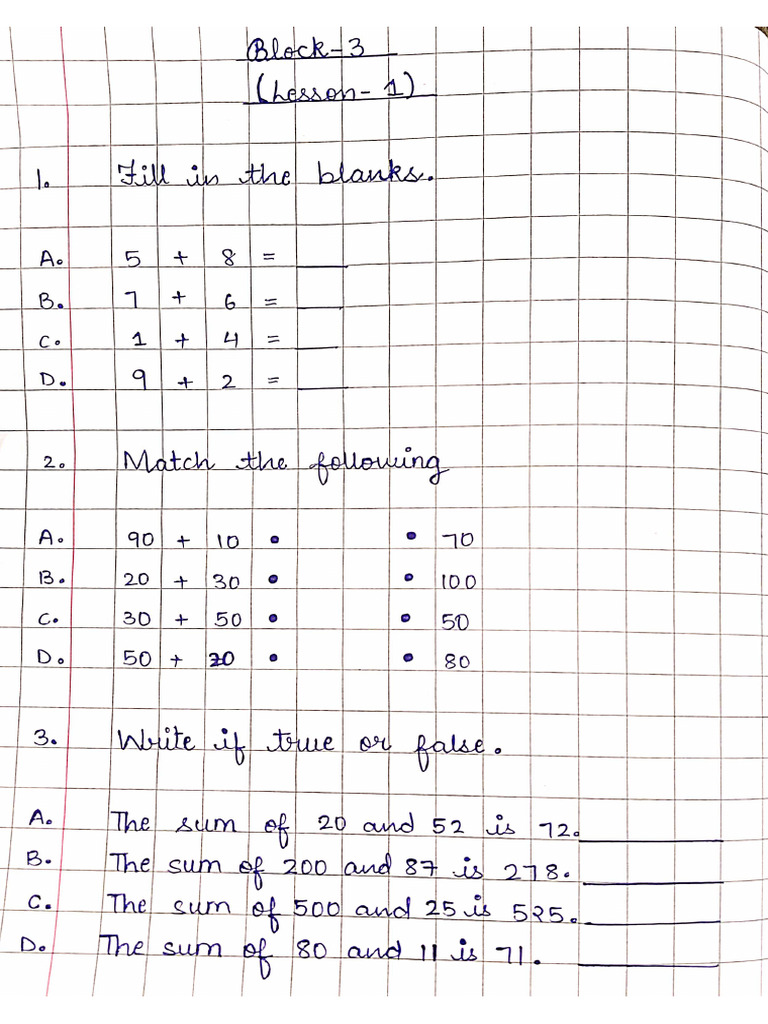 Block-3
(Lesson-1)
1. Fill in the blanks.
A. 5 + 8 = ____
B. 7 + 6 = ____
C. 1 + 4 = ____
D. 9 + 2 = ____
2. Match the following
A. 90 + 10 • • 70
B. 20 + 30 • • 100
C. 30 + 50 • • 50
D. 50 + 20 • • 80
3. Write if true or false.
A. The sum of 20 and 52 is 72. ____
B. The sum of 200 and 87 is 278. ____
C. The sum of 500 and 25 is 525. ____
D. The sum of 80 and 11 is 71. ____